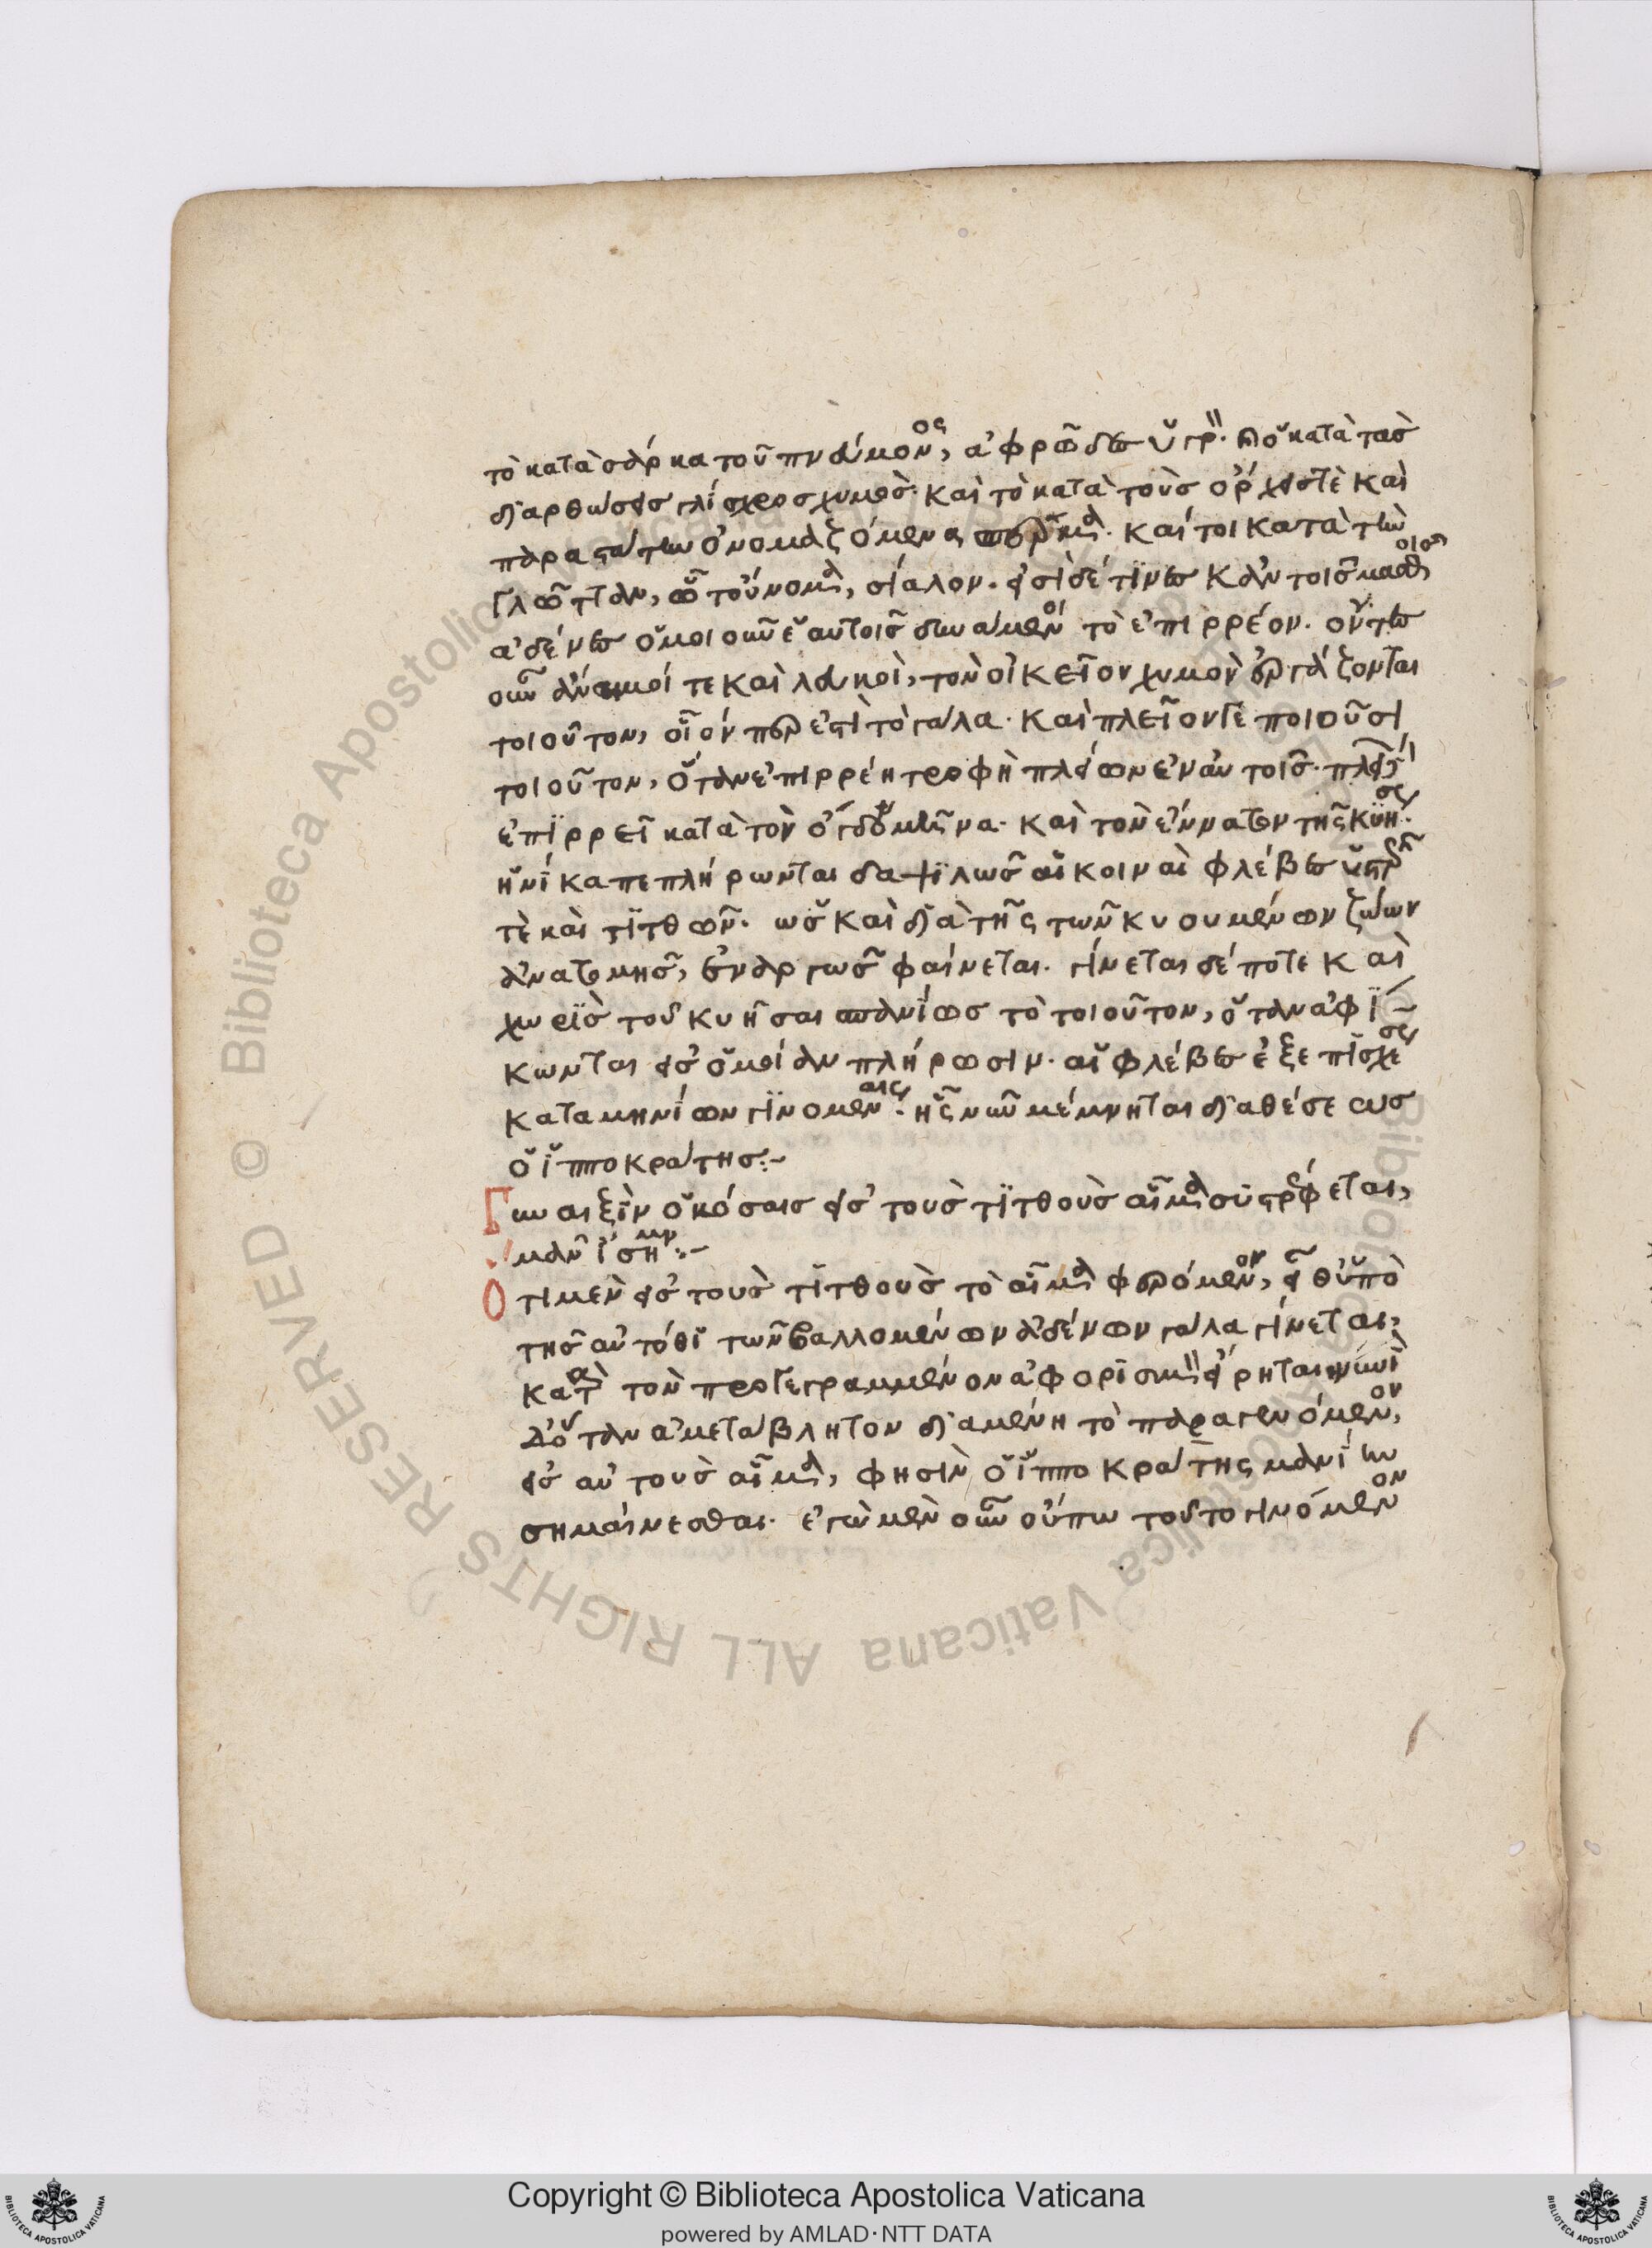 τὸ κατὰ σάρκα τοῦ πνεύμονος, ἀφρῶδες ὑγρ. κατὰ τὰς
διαρθώσεις γλίσχρος χυμὸς. καὶ τὸ κατὰ τοὺς ὄρχεις τὲ καὶ
παραστάτην ὀνομαζόμενα σπέρμα. καί τοι κατὰ τὴν
γλῶτταν, ᾧ τοὔνομα, σίαλον. εἰσὶ δέ τινες κἀν τοῖς μασθοῖς
ἀδένες ὁμοιοῦν ἑαυτοῖς δυνάμενοι τὸ ἐπιρρέον. οὕτως
οὖν ἄναιμοί τε καὶ λευκοὶ, τὸν οἰκεῖον χυμὸν ἐργάζονται
τοιοῦτον, οἷόν περ ἐστὶ τὸ γάλα. καὶ πλεῖόν γε ποιοῦσι
τοιοῦτον, ὅταν ἐπιρρέη τροφὴ πλείων ἐν αὐτοῖς.
ἐπιρρεῖ κατὰ τὸν ὄγδοον μῆνα. καὶ τὸν ἔννατον τῆς κυήσεως.
ἡνίκα πεπλήρωνται δαψιλῶς αἱ κοιναὶ φλέβες
τὲ καὶ τιτθῶν. ὡς καὶ διὰ τῆς τῶν κυουμένων ζώων
ἀνατομῆς, ἐναργῶς φαίνεται. γίνεται δέ ποτε καὶ
χωρὶς τοῦ κυῆσαι σπανίως τὸ τοιοῦτον, ὅταν ἀφί-
κωνται εἰς ὁμοίαν πλήρωσιν. αἱ φλέβες ἐξ ἐπισχέσεως
καταμηνίων γινομέναις. ἧς νῦν μέμνηται διαθέσεως
ὁ ἱπποκράτης:-
Γυναιξὶν ὁκόσαις εἰς τοὺς τιτθοὺς αἷμα συστρέφεται,
μανίην σημ:-
Ὅτι μὲν εἰς τοὺς τιτθοὺς τὸ αἷμα φερόμενον, εἶθ ὑπὸ
τῆς αὐτόθι τῶν βαλλομένων ἀδένων γάλα γίνεται,
κατὰ τὸν προγεγραμμένον ἀφορισμὸν εἴρηται νυνὶ
δ ὅταν ἀμετάβλητον διαμένη τὸ παραγενόμενον,
εἰς αὐτοὺς αἷμα, φησὶν ὁ ἱπποκράτης μανίην
σημαίνεσθαι. ἐγὼ μὲν οὖν οὔπω τοῦτο γινόμενον
Copyright © Biblioteca Apostolica Vaticana
powered by AMLAD·NTT DATA
© Biblioteca Apostolica Vaticana ALL RIGHTS RESERVED